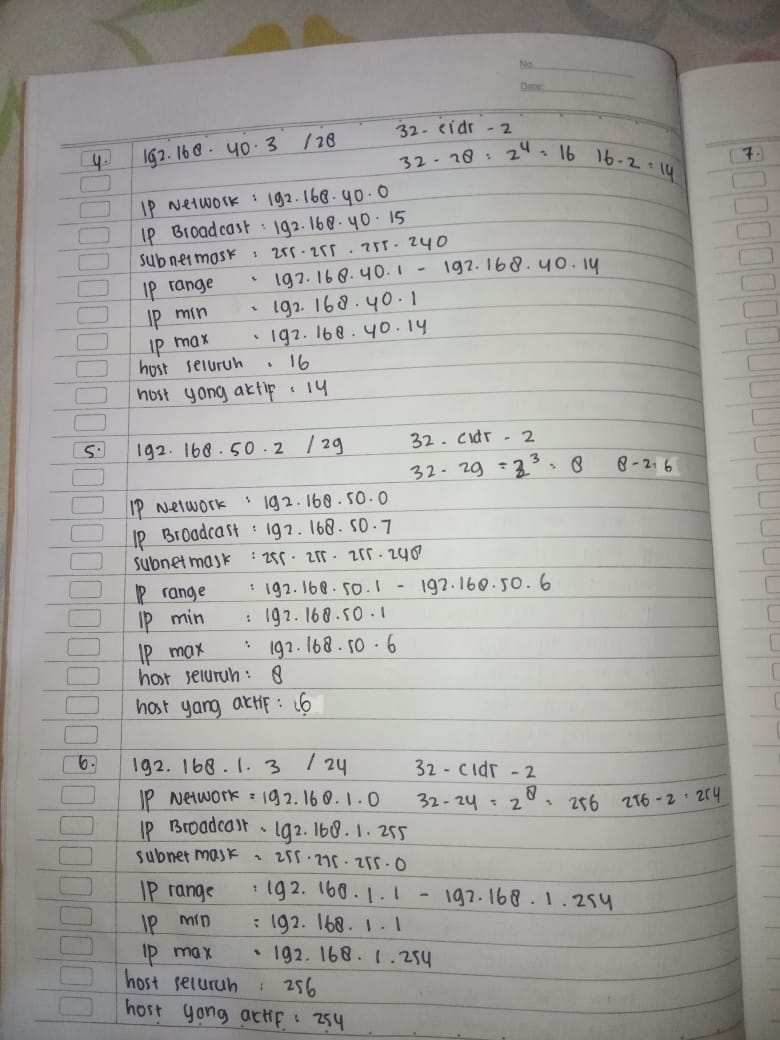 No.
Date:
4. 192.168.40.3 /28 32-cidr-2
32-28 = 2^4 = 16 16-2=14
IP Network : 192.168.40.0
IP Broadcast : 192.168.40.15
subnetmask : 255.255.255.240
IP range : 192.168.40.1 - 192.168.40.14
IP min : 192.168.40.1
IP max : 192.168.40.14
host seluruh : 16
host yang aktif : 14
5. 192.168.50.2 /29 32-cidr-2
32-29 = 2^3 = 8 8-2=6
IP Network : 192.168.50.0
IP Broadcast : 192.168.50.7
subnetmask : 255.255.255.248
IP range : 192.168.50.1 - 192.168.50.6
IP min : 192.168.50.1
IP max : 192.168.50.6
host seluruh : 8
host yang aktif : 6
6. 192.168.1.3 /24 32-cidr-2
IP Network = 192.168.1.0 32-24 = 2^8 = 256 256-2=254
IP Broadcast = 192.168.1.255
subnet mask = 255.255.255.0
IP range : 192.168.1.1 - 192.168.1.254
IP min = 192.168.1.1
IP max = 192.168.1.254
host seluruh : 256
host yang aktif : 254
7.